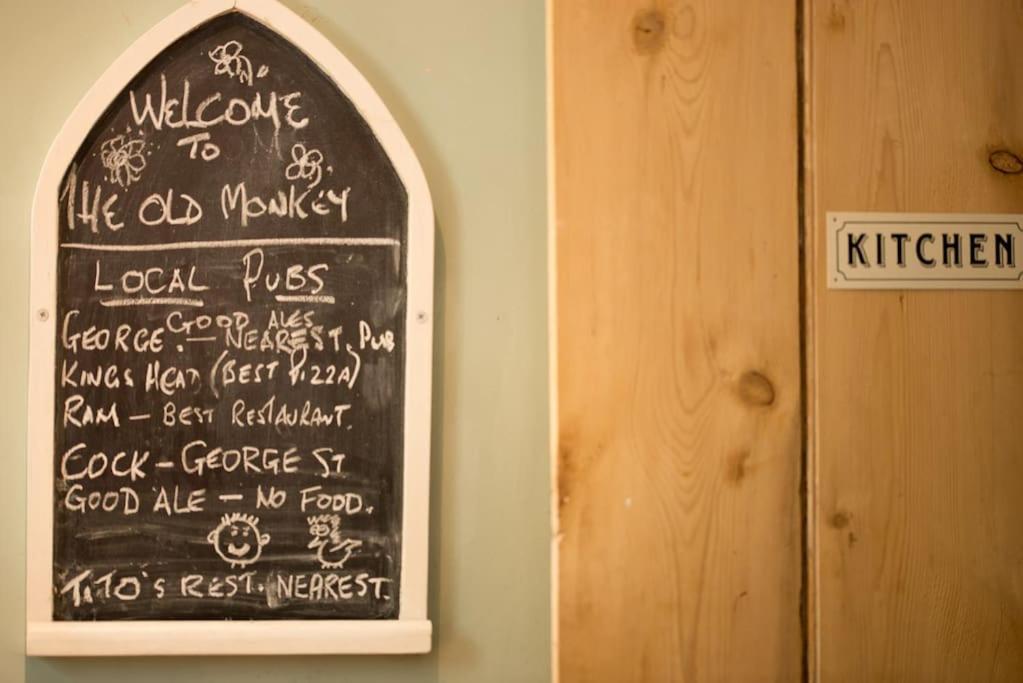 WELCOME
TO
THE OLD MONKEY
LOCAL PUBS
GOOD ALES
GEORGE. — NEAREST. PUB
KINGS HEAD (BEST PIZZA)
RAM — BEST RESTAURANT.
COCK — GEORGE ST
GOOD ALE — NO FOOD.
TITO'S REST. NEAREST.
KITCHEN